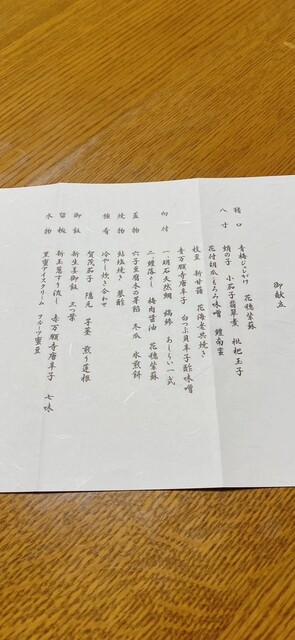 御献立
猪口 青梅ジュレがけ 花穂紫蘇
八寸 蛸の子 小茄子翡翠煮 枇杷玉子
花付胡瓜もろみ味噌 鱧南蛮
枝豆 新甘藷 花海老共焼き
青万願寺唐辛子 白つぶ貝辛子酢味噌
向付 一、明石天然鯛 あしらい一式
二、鱧落とし 梅肉醤油 花穂紫蘇
蓋物 六子豆腐 冬瓜 氷煎餅
焼物 鮎塩焼き 蓼酢
強肴 冷やし炊き合わせ
賀茂茄子 隠元 芋茎 煎り蓮根
御飯 新生姜御飯 三つ葉
留椀 新玉葱すり流し 赤万願寺唐辛子 七味
水物 黒蜜アイスクリーム フルーツ蜜豆